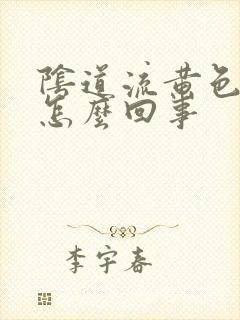 陰道流黃色
怎麼回事
李宇春